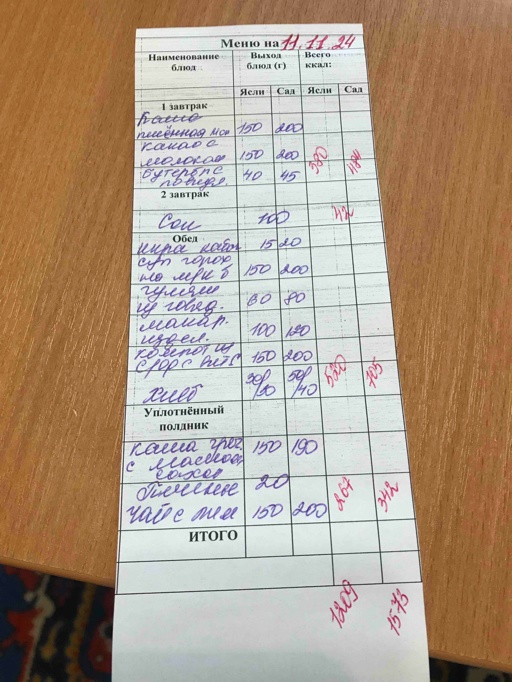 Меню на 11.11.24
Наименование блюд Выход блюд (г) Всего ккал:
Ясли Сад Ясли Сад
1 завтрак
Каша
пшённая мол 150 200
Какао с
молоком 150 200 380
Бутерб с
повидл. 40 45
2 завтрак
Сок 100 42
Обед
икра кабач 15 20
Суп горох
на мяс б 150 200
гуляш
из говяд. 60 80
макар.
издел. 100 120
компот из
с/ф с вит С 150 200 520 705
Хлеб 30/30 50/40
Уплотнённый
полдник
каша греч. 150 190
с маслом
сахар
Печенье 20
Чай с 150 200 267 342
ИТОГО
1209 1573